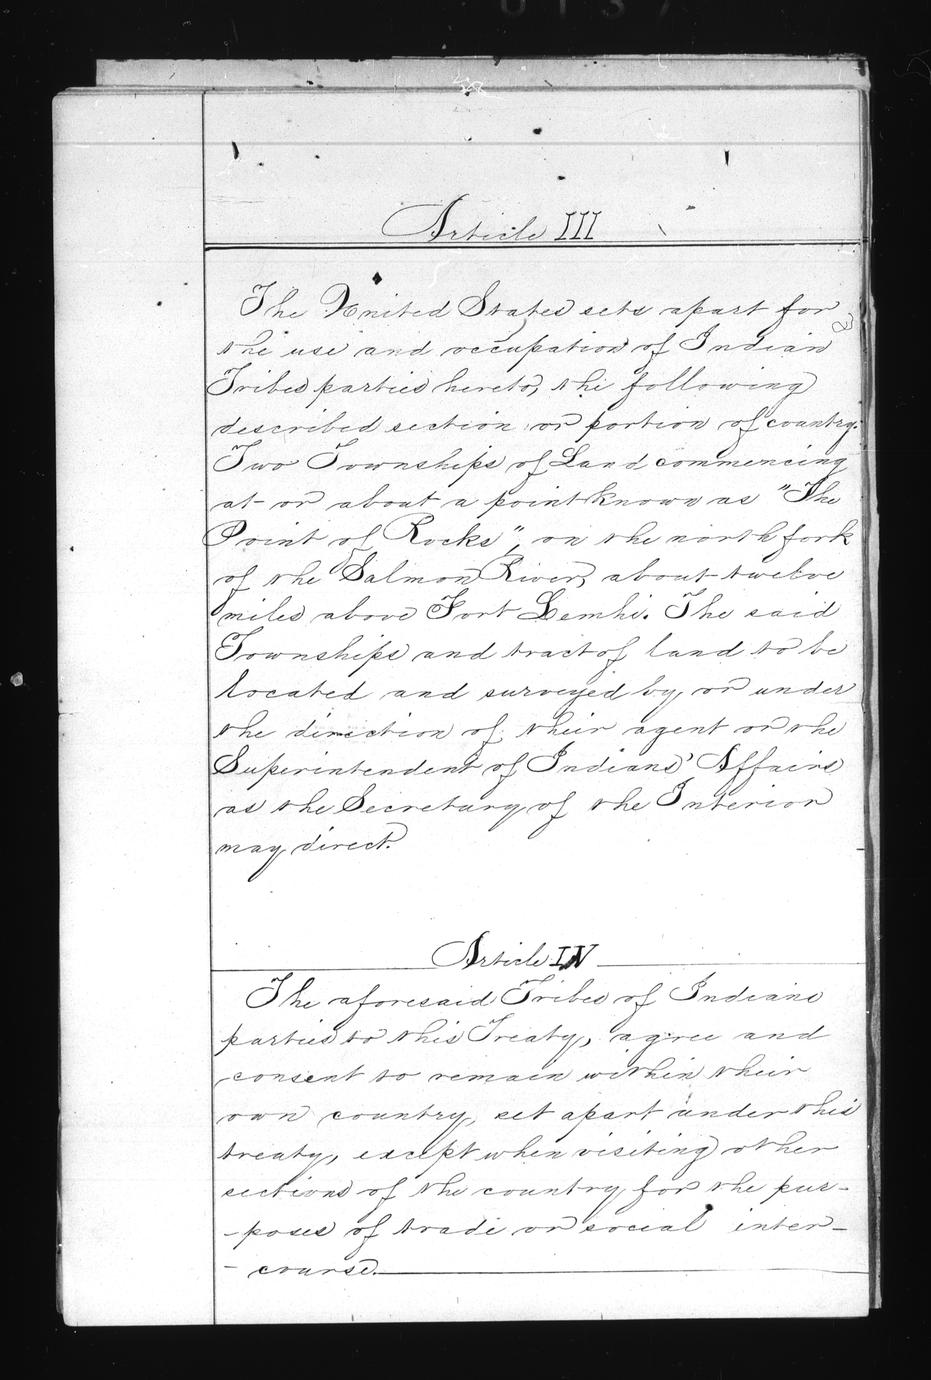 Article III
The United States sets apart for
the use and occupation of Indian
Tribes parties hereto, the following
described section or portion of country.
Two Townships of Land commencing
at or about a point known as "The
Point of Rocks", on the north fork
of the Salmon River, about twelve
miles above Fort Lemhi. The said
Townships and tract of land to be
located and surveyed by, or under
the direction of, their agent or the
Superintendent of Indians' Affairs
as the Secretary of the Interior
may direct.
Article IV
The aforesaid Tribes of Indians
parties to this Treaty, agree and
consent to remain within their
own country, set apart under this
treaty, except when visiting other
sections of the country for the pur-
-poses of trade or social inter-
-course.